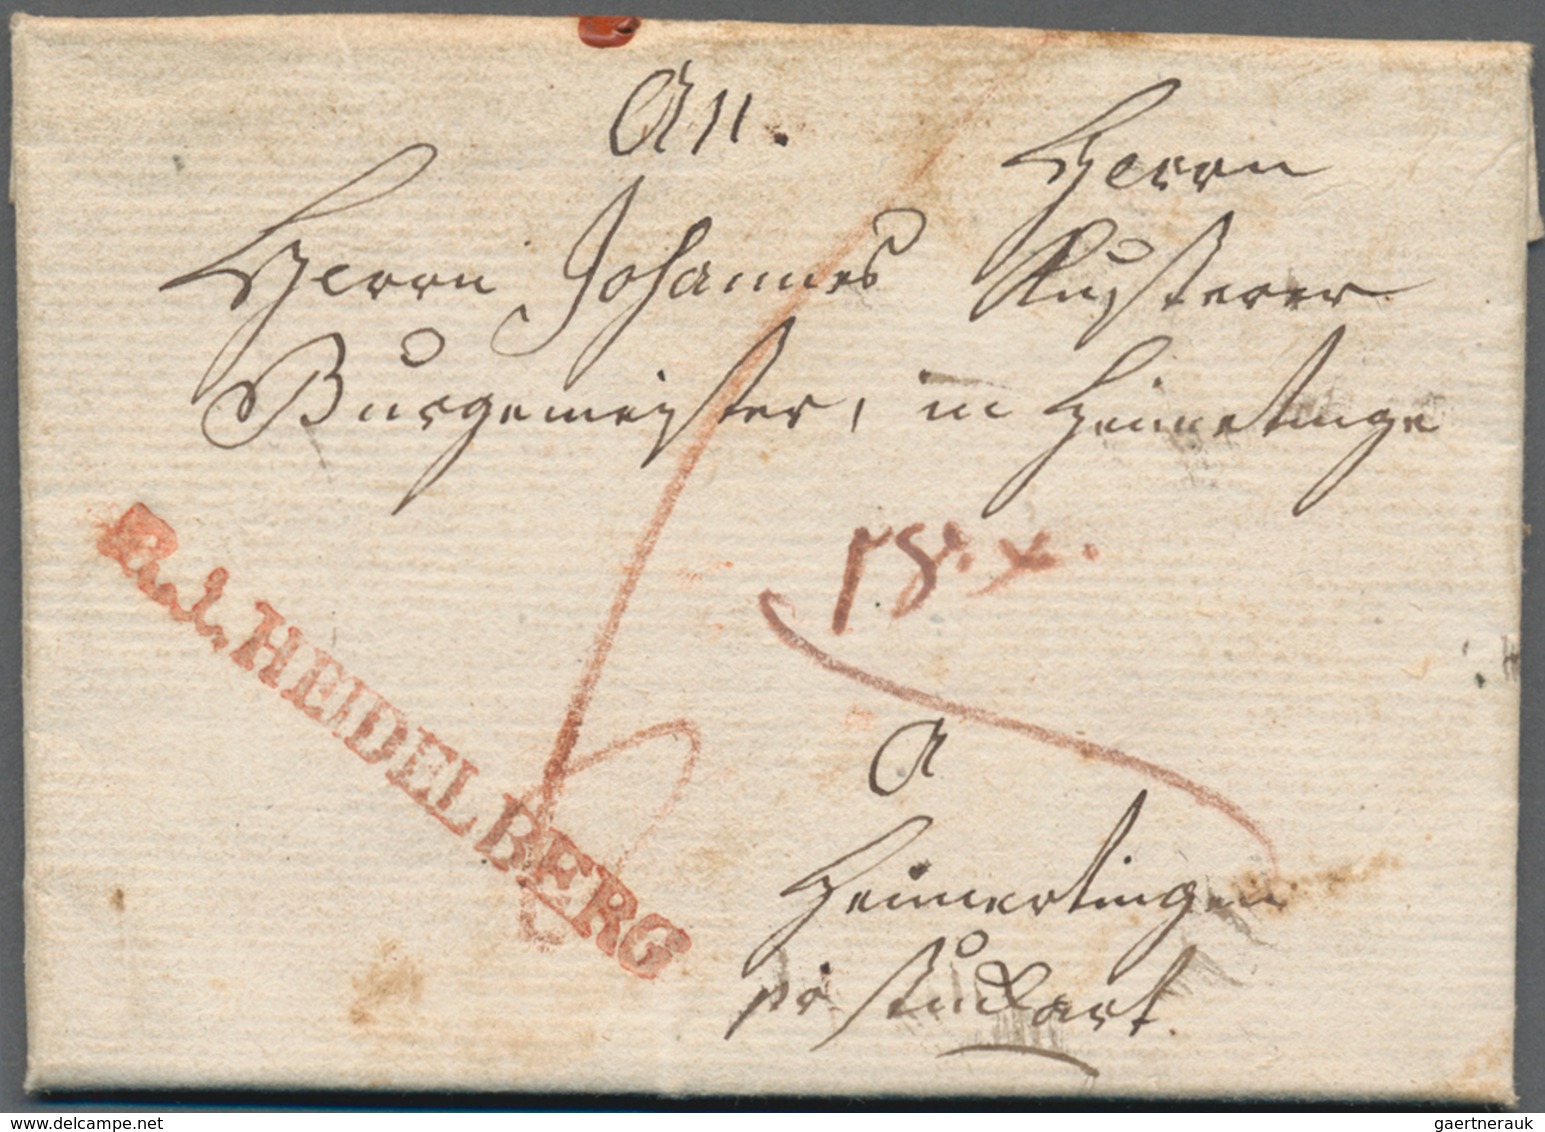 An.
Herrn
Herrn Johannes Kusterer
Burgemeister, in Heimetinge
R.4. HEIDELBERG
x.
a
Heimertingen
pr Studtart.
www.delcampe.net
gaertnerauk